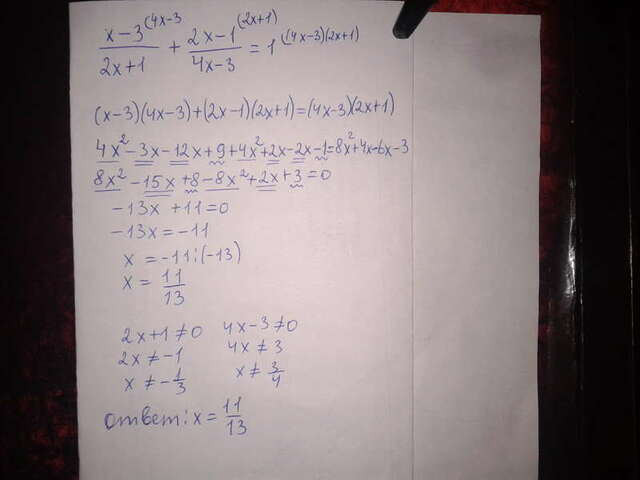 x-3^(4x-3 / 2x+1 + 2x-1^(2x+1) / 4x-3 = 1^((4x-3)(2x+1)
(x-3)(4x-3)+(2x-1)(2x+1)=(4x-3)(2x+1)
4x²-3x-12x+9+4x²+2x-2x-1=8x²+4x-6x-3
8x²-15x+8-8x²+2x+3=0
-13x+11=0
-13x=-11
x=-11:(-13)
x=11/13
2x+1≠0 4x-3≠0
2x≠-1 4x≠3
x≠-1/3 x≠3/4
ответ: x=11/13